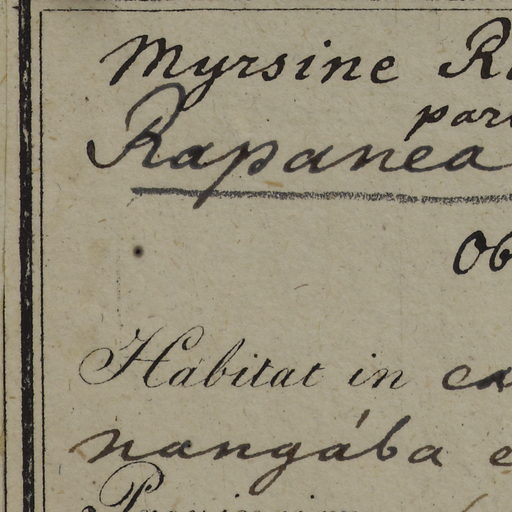 Myrsine R
par
Rapanea
Ob
Habitat in ca
nangába e